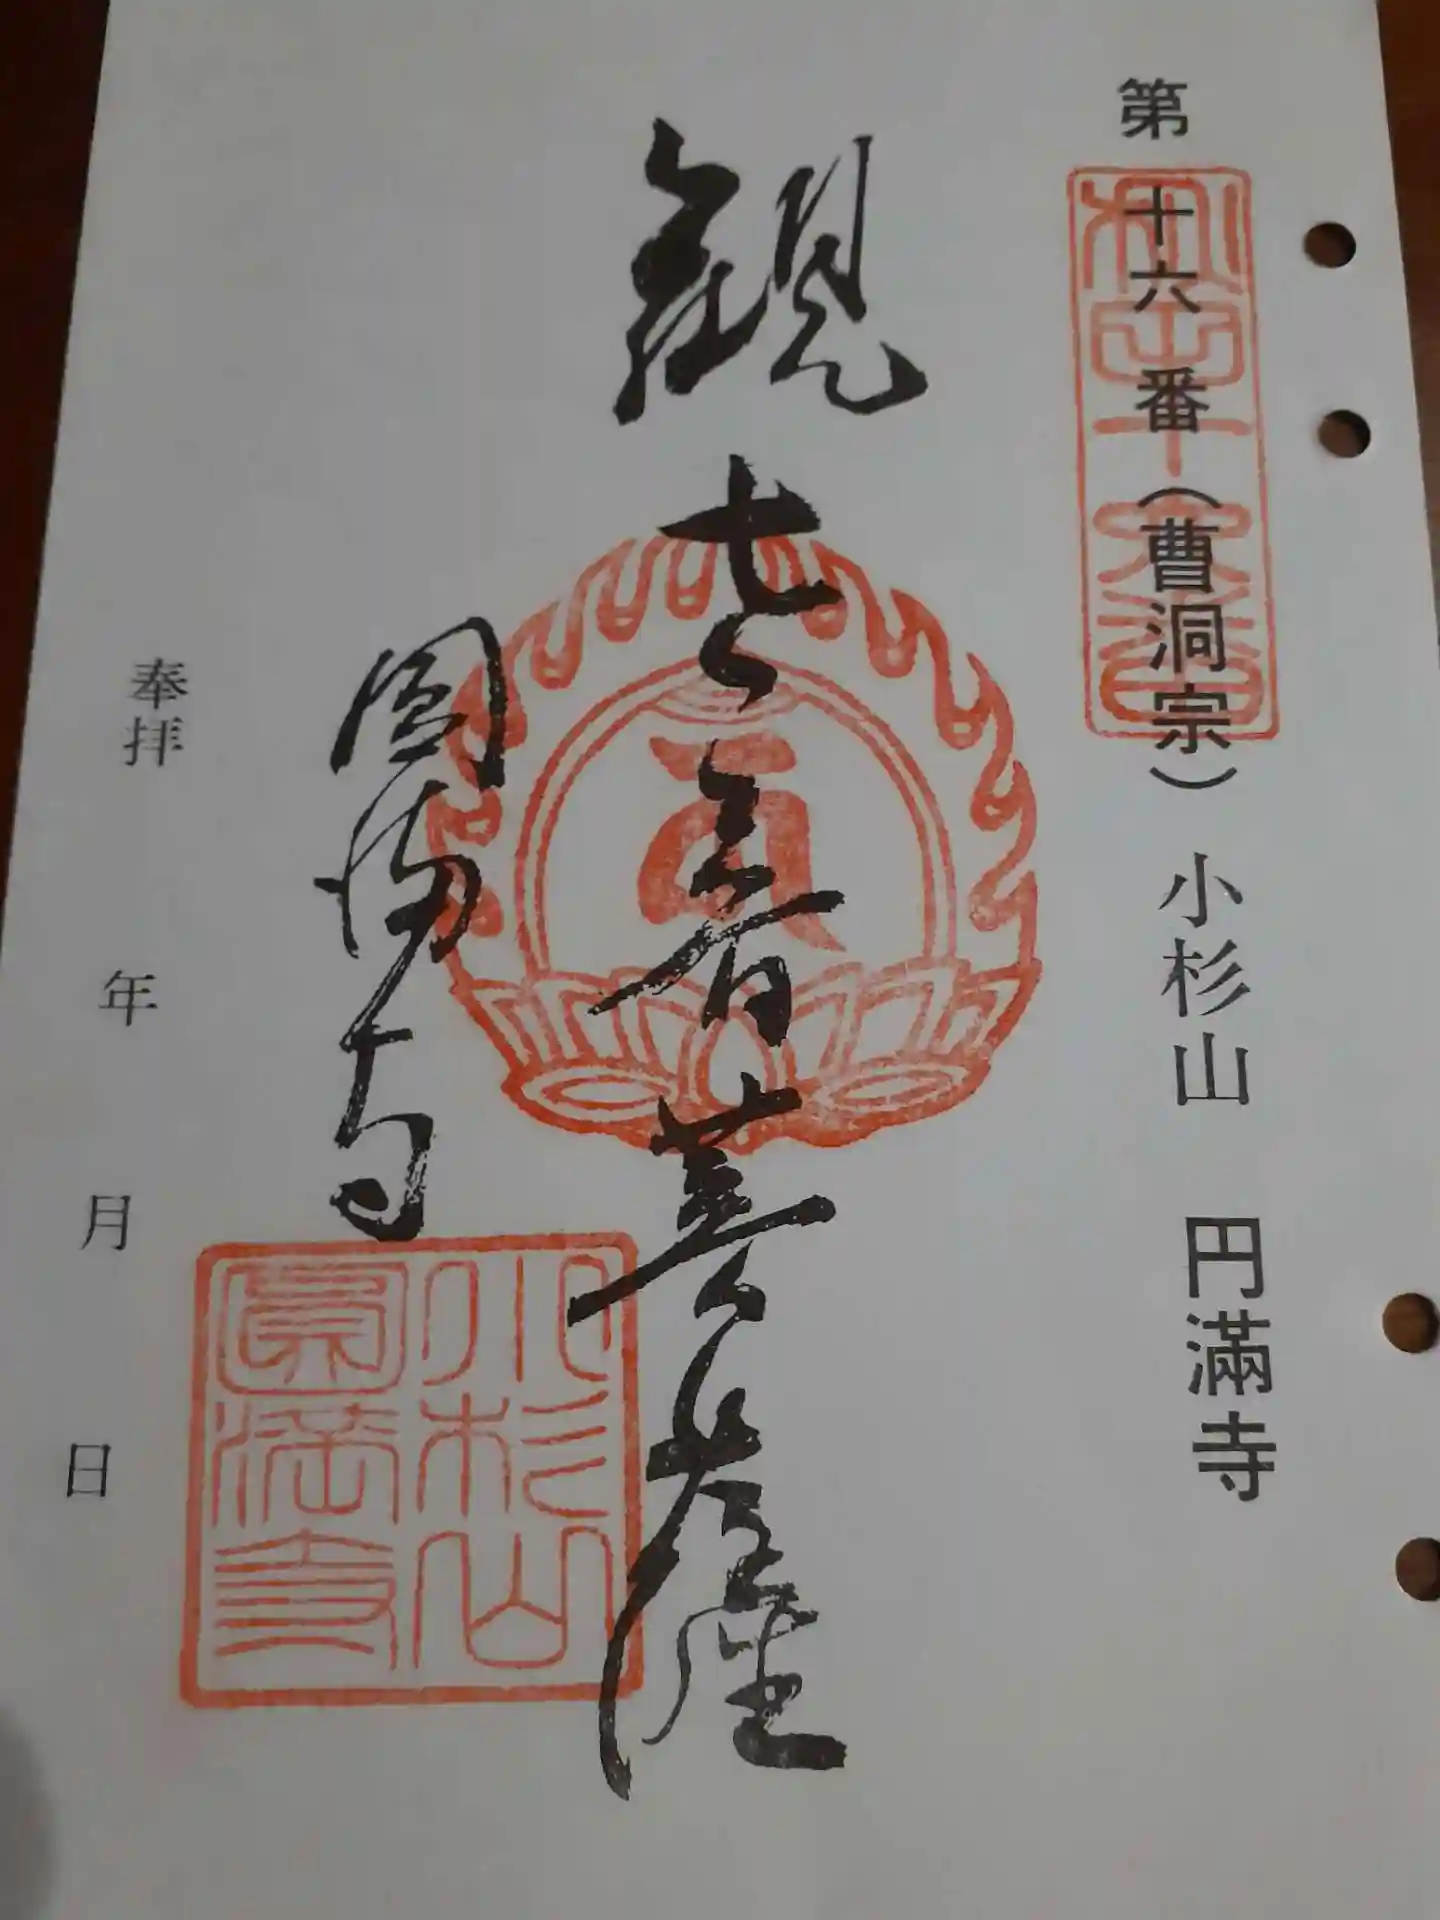 第十六番（曹洞宗）小杉山 円滿寺
観世音菩薩
圓満寺
奉拝 年 月 日
小杉山
圓満寺